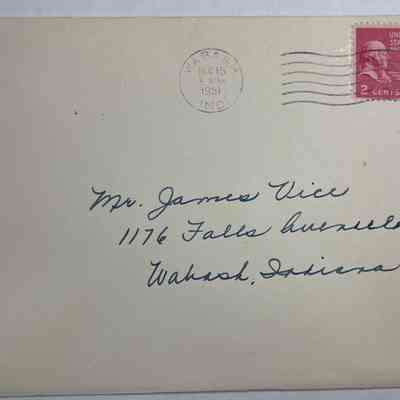 WABASH
DEC 15
1951
IND.
UNI
STAT
2 CENTS
Mr. James Vice
1176 Falls Avenue
Wabash, Indiana